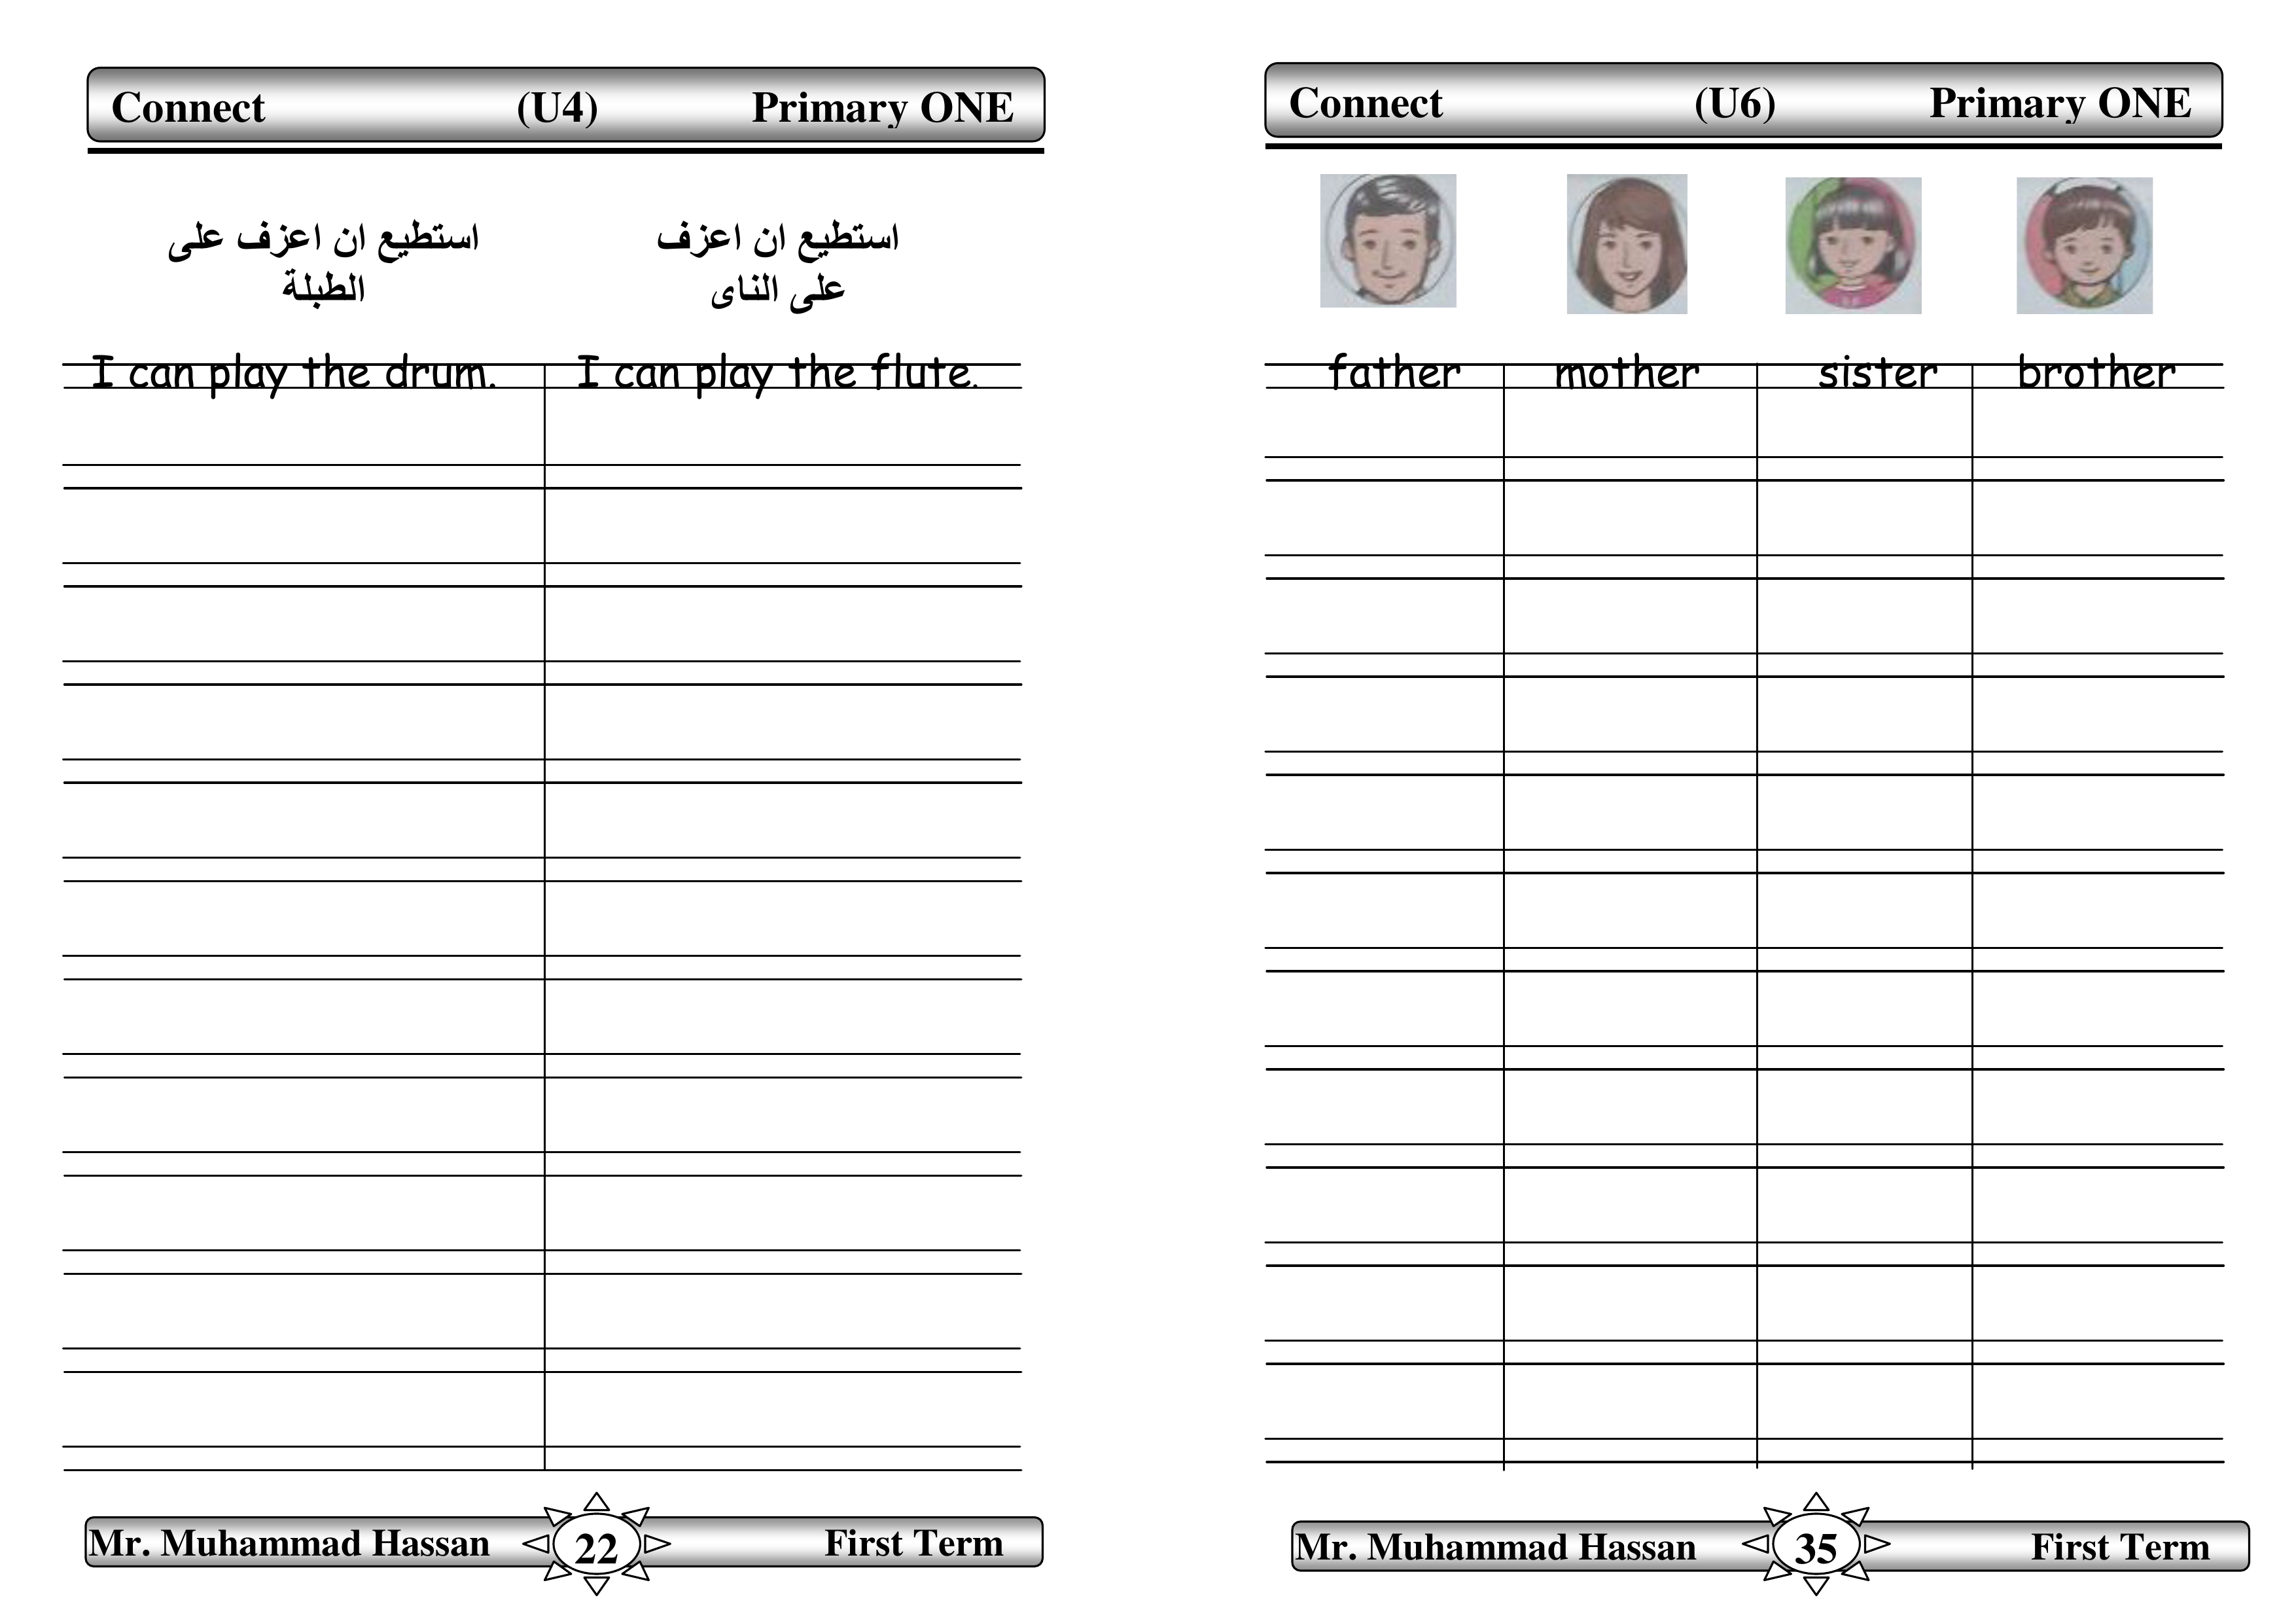 Connect (U4) Primary ONE
استطيع ان اعزف على
الطبلة
استطيع ان اعزف
على الناى
I can play the drum. I can play the flute.
Mr. Muhammad Hassan 22 First Term
Connect (U6) Primary ONE
father mother sister brother
Mr. Muhammad Hassan 35 First Term